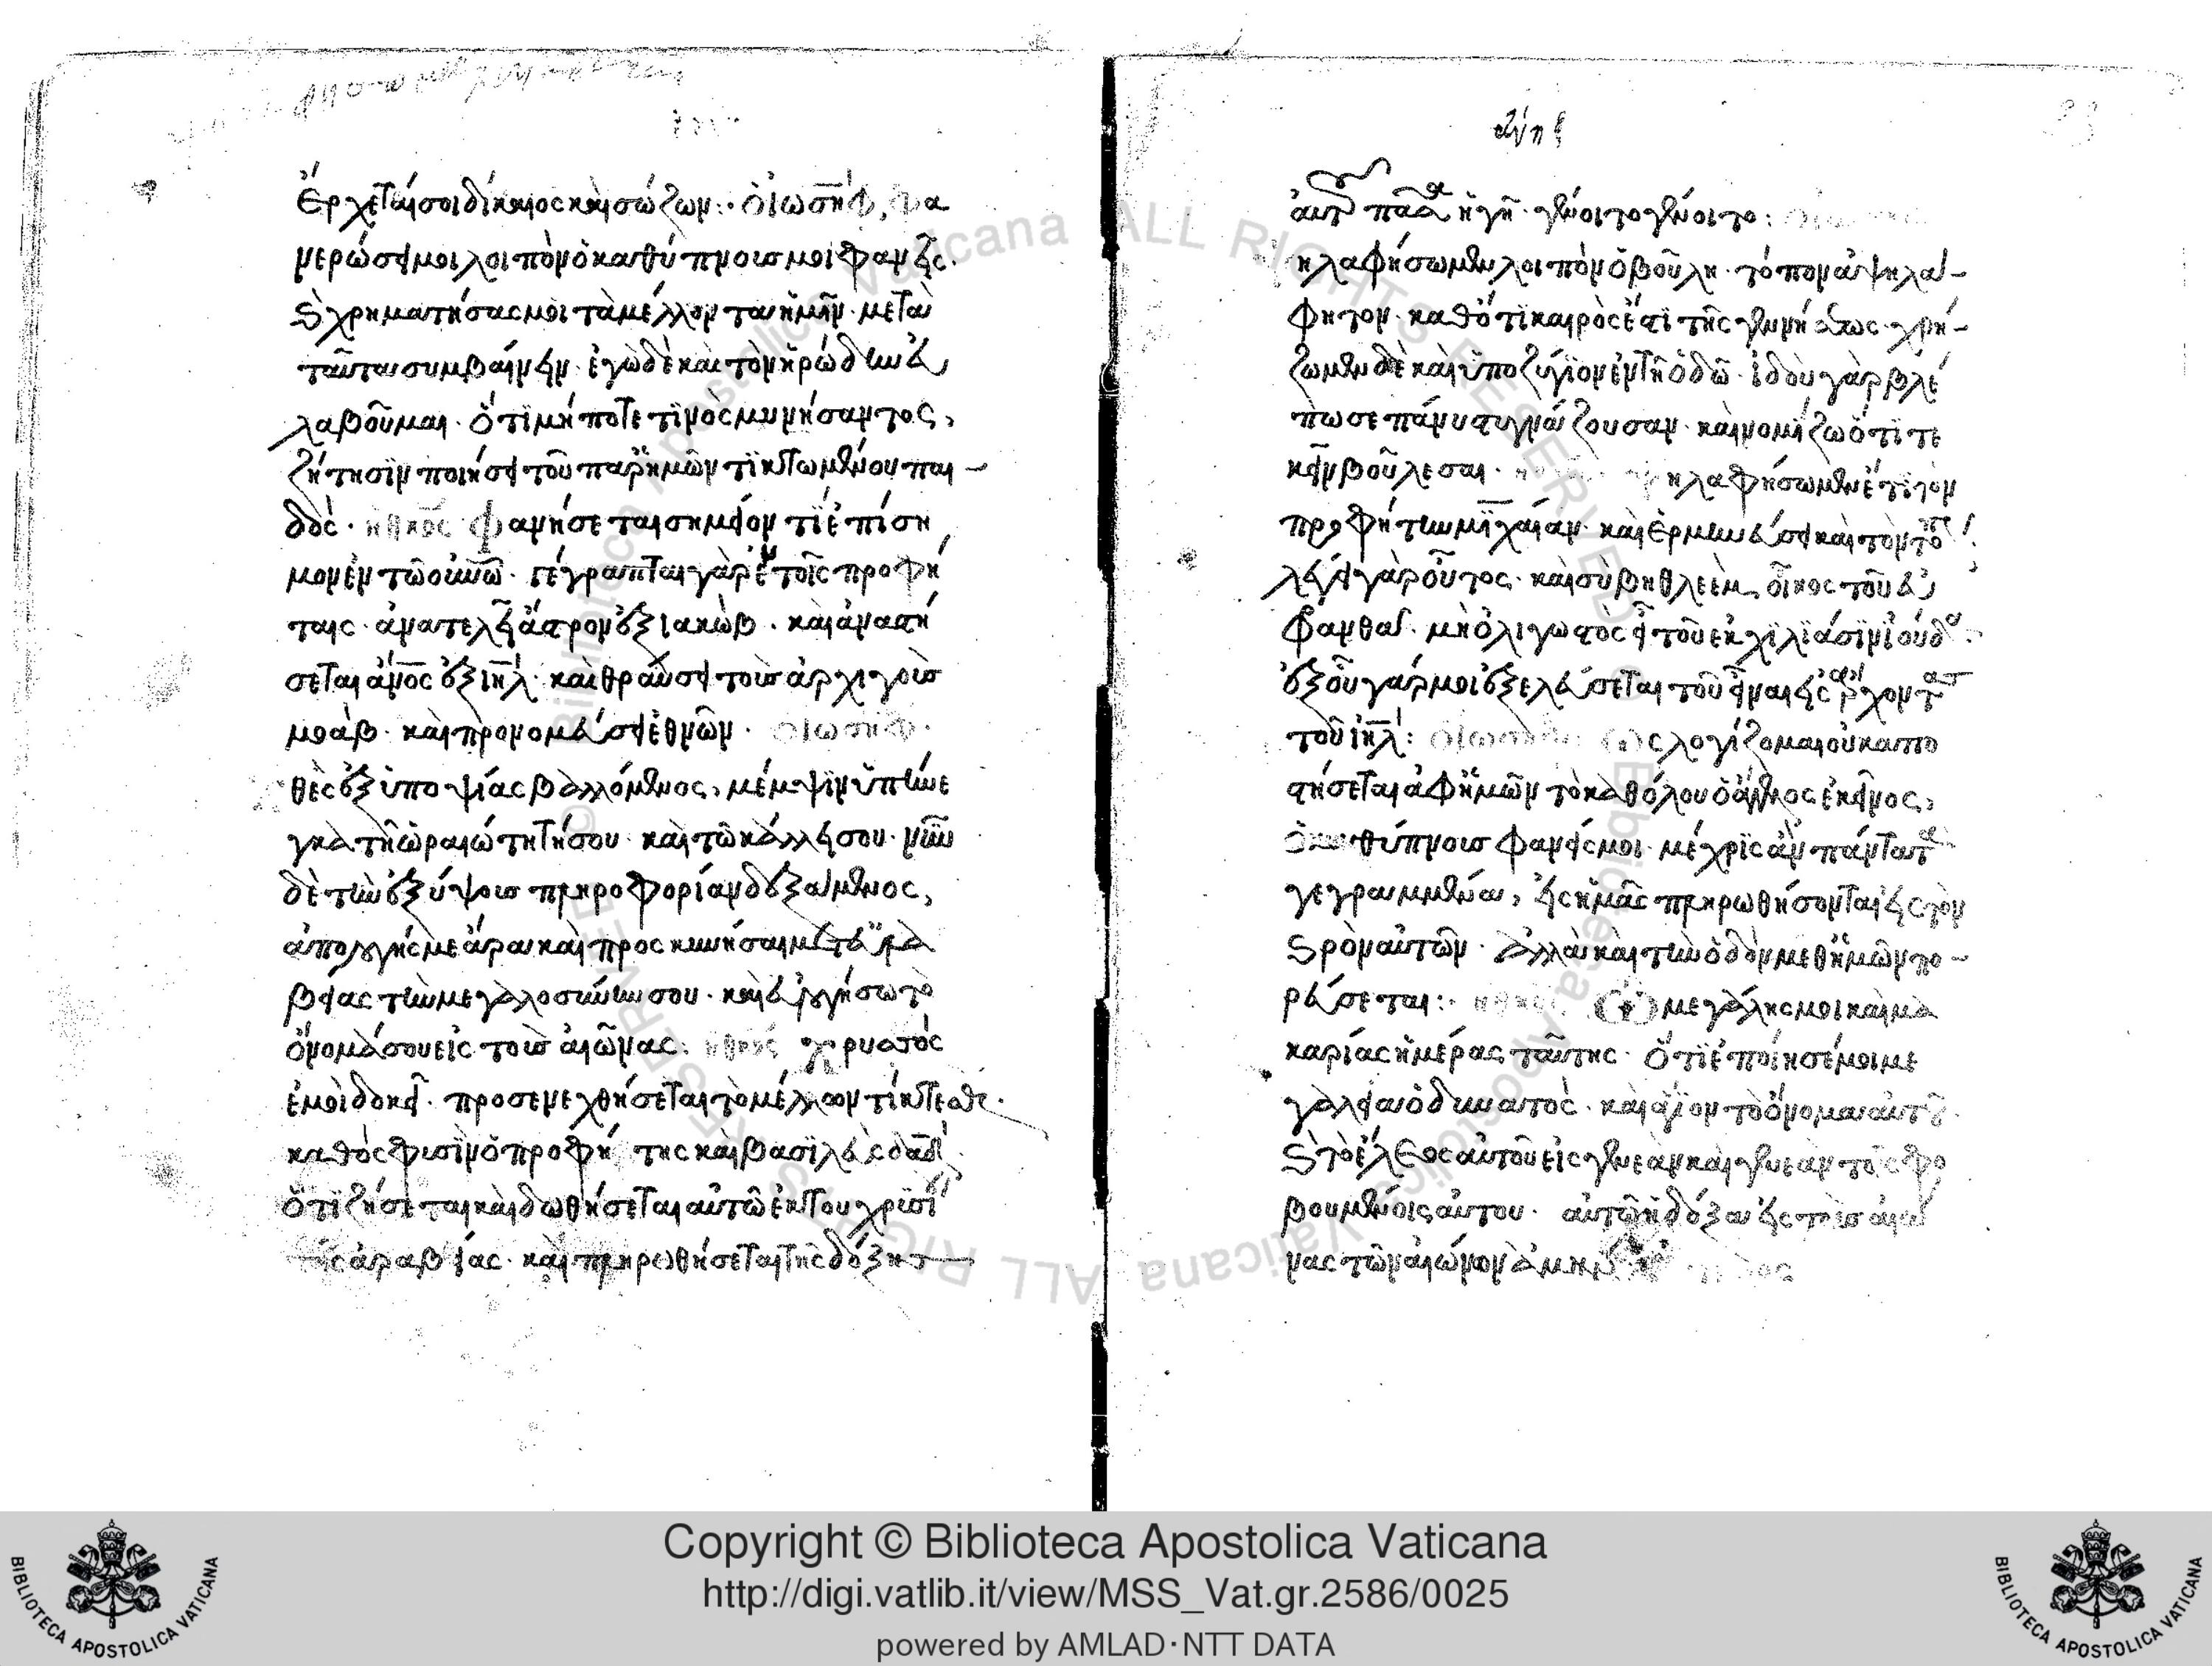 ἔρχεται σοι δίκαιος καὶ σώζων: ὁ ἰωσήφ, Φα
νερώσει μοι λοιπὸν ὁ καθύπνοις μοι φανείς.
χρηματήσας μοι τὰ μέλλοντα ἡμῖν. μετὰ
ταῦτα συμβαίνειν. ἐγὼ δὲ καὶ τὸν ἡρώδην εὐ
λαβοῦμαι. ὅτι μήποτε τινὸς μηνήσαντος,
ζήτησιν ποιήσει τοῦ παρ' ἡμῶν τικτωμένου παι-
δός. ἡ θκος Φανήσεται σημεῖον τι ἐπίση
μον ἐν τῶ οὐνῶ. γέγραπται γὰρ ἐν τοῖς προφή
ταις. ἀνατελεῖ ἄστρον ἐξ ἰακώβ. καὶ ἀναστή
σεται ἀνος ἐξ ιηλ. καὶ θραύσει τοὺς ἀρχιγοὺς
μοάβ. καὶ προνομεύσει ἐθνῶν. ὁ ἰωσήφ.
θὲς ἐξ ὑποψίας βαλλόμενος, μέμψιν ὑπήνε
γκα τῆ ὡραιώτητί σου. καὶ τῶ κάλλει σου. νῦν
δὲ τὴν ἐξ ὕψους πληροφορίαν δεξάμενος,
ἀπολογήσομαι καὶ προσκυνήσαι μετ' εὐλα
βείας τὴν μεγαλοσύνην σου. καὶ εὐλογήσω τὸ
ὄνομά σου εἰς τοὺς αἰῶνας. ἡ θκος χρυσὸς
ἐμοὶ δοκεῖ. προσενεχθήσεται τὸ μέλλον τίκτεσθε.
καθὸς φισὶν ὁ προφήτης καὶ βασιλεὺς δαδ.
ὅτι ζήσεται καὶ δωθήσεται αὐτῶ ἐκ του χρισί
ς ἀραβίας. καὶ πληρωθήσεται τῆς δόξης
αὐτοῦ πᾶσα ἡ γῆ. γένοιτο γένοιτο:
ηλαφήσωμεν λοιπὸν ὃ βούλη. τόπον ἀψηλά-
φητον. καθότι καιρὸς ἐστὶ τῆς γεννήσεως. χρή-
ζωμεν δὲ καὶ ὑποζύγιον ἐν τῆ ὁδῶ. ἰδοὺ γὰρ βλέ
πω σε πάνυ στυγνάζουσαν. καὶ νομίζω ὅτι τε
κεῖν βούλεσαι. ηλαφήσωμεν ἔτι τὸν
προφήτην μιχαίαν. καὶ ἑρμηνεύσει καὶ τὸν τόπον.
λέγει γὰρ οὗτος. καὶ σὺ βηθλεὲμ, οἶκος τοῦ εὐ
φανθά. μὴ ὀλιγωστὸς εἶ τοῦ ἐν χιλιάσιν ἰούδα.
ἐξ οὗ γάρ μοι ἐξελεύσεται τοῦ εἶναι εἰς ἄρχοντα
τοῦ ιηλ: ὁ ἰωσήφ: Ως λογίζομαι οὐκ ἀπο
στήσεται ἀφ' ἡμῶν τὸ καθόλου ὁ ἄγγελος ἐκεῖνος,
ὁ καθύπνοις φανείς μοι. μέχρις ἂν πάντα τὰ
γεγραμμένα, εἰς ἡμᾶς πληρωθήσονται εἰς τὸν
ὅρον αὐτῶν. ἀλλὰ καὶ τὴν ὁδὸν μεθ' ἡμῶν πο-
ρεύσεται: ἡ θκος Ὢ μεγάλης μοι καὶ μα
καρίας ἡμέρας ταύτης. ὅτι ἐποίησέ μοι με
γαλεῖα ὁ δυνατός. καὶ ἅγιον τὸ ὄνομα αὐτοῦ.
τὸ ἔλεος αὐτοῦ εἰς γενεὰν καὶ γενεὰν τοῖς φο
βουμένοις αὐτου. αὐτῶ ἡ δόξα εἰς τοὺς αἰῶ
νας τῶν αἰώνον ἀμήν
Copyright © Biblioteca Apostolica Vaticana
http://digi.vatlib.it/view/MSS_Vat.gr.2586/0025
powered by AMLAD·NTT DATA
BIBLIOTECA APOSTOLICA VATICANA
BIBLIOTECA APOSTOLICA VATICANA